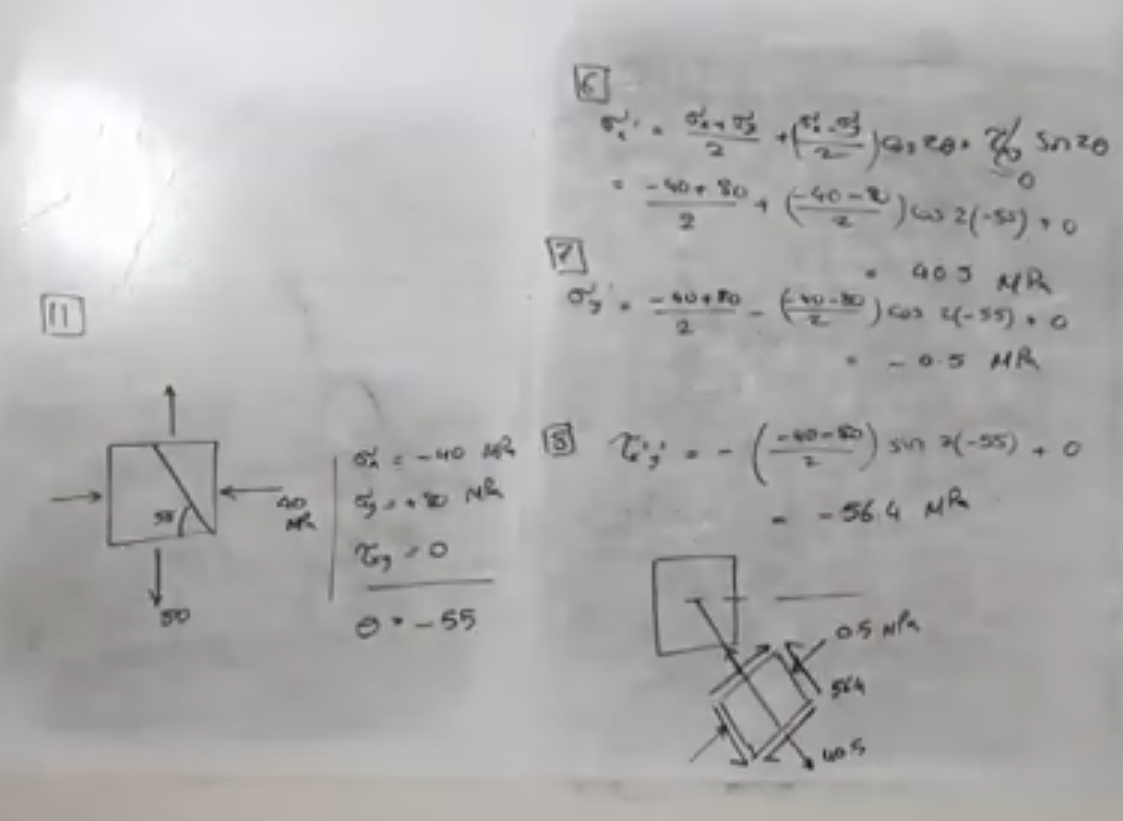 11
55
40
MPa
50
σx = -40 MPa
σy = +80 MPa
τxy = 0
θ = -55
6
σx' = (σx + σy)/2 + ((σx - σy)/2) cos 2θ + τxy sin 2θ
= 0
= (-40 + 80)/2 + ((-40 - 80)/2) cos 2(-55) + 0
= 40.5 MPa
7
σy' = (-40 + 80)/2 - ((-40 - 80)/2) cos 2(-55) + 0
= -0.5 MPa
8 τx'y' = - ((-40 - 80)/2) sin 2(-55) + 0
= -56.4 MPa
0.5 MPa
56.4
40.5